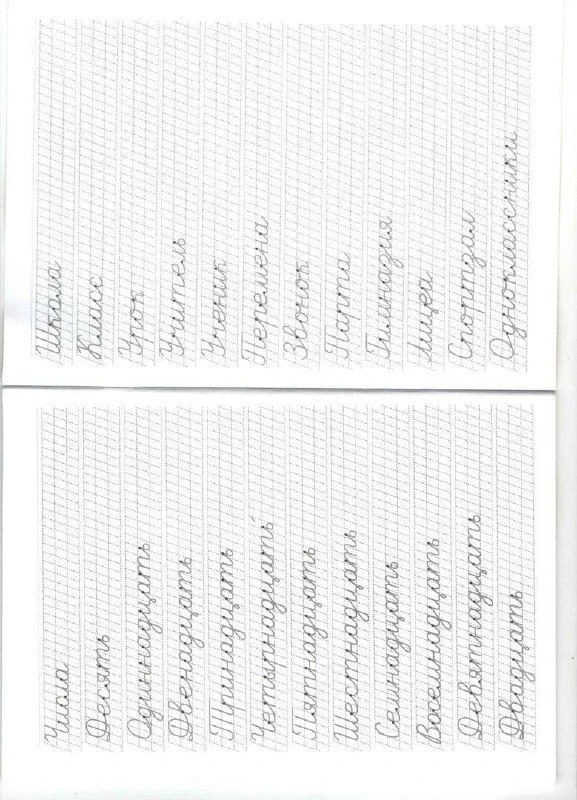 Числа
Десять
Одиннадцать
Двенадцать
Тринадцать
Четырнадцать
Пятнадцать
Шестнадцать
Семнадцать
Восемнадцать
Девятнадцать
Двадцать
Школа
Класс
Урок
Учитель
Ученик
Перемена
Звонок
Парта
Гимназия
Лицей
Спортзал
Одноклассники